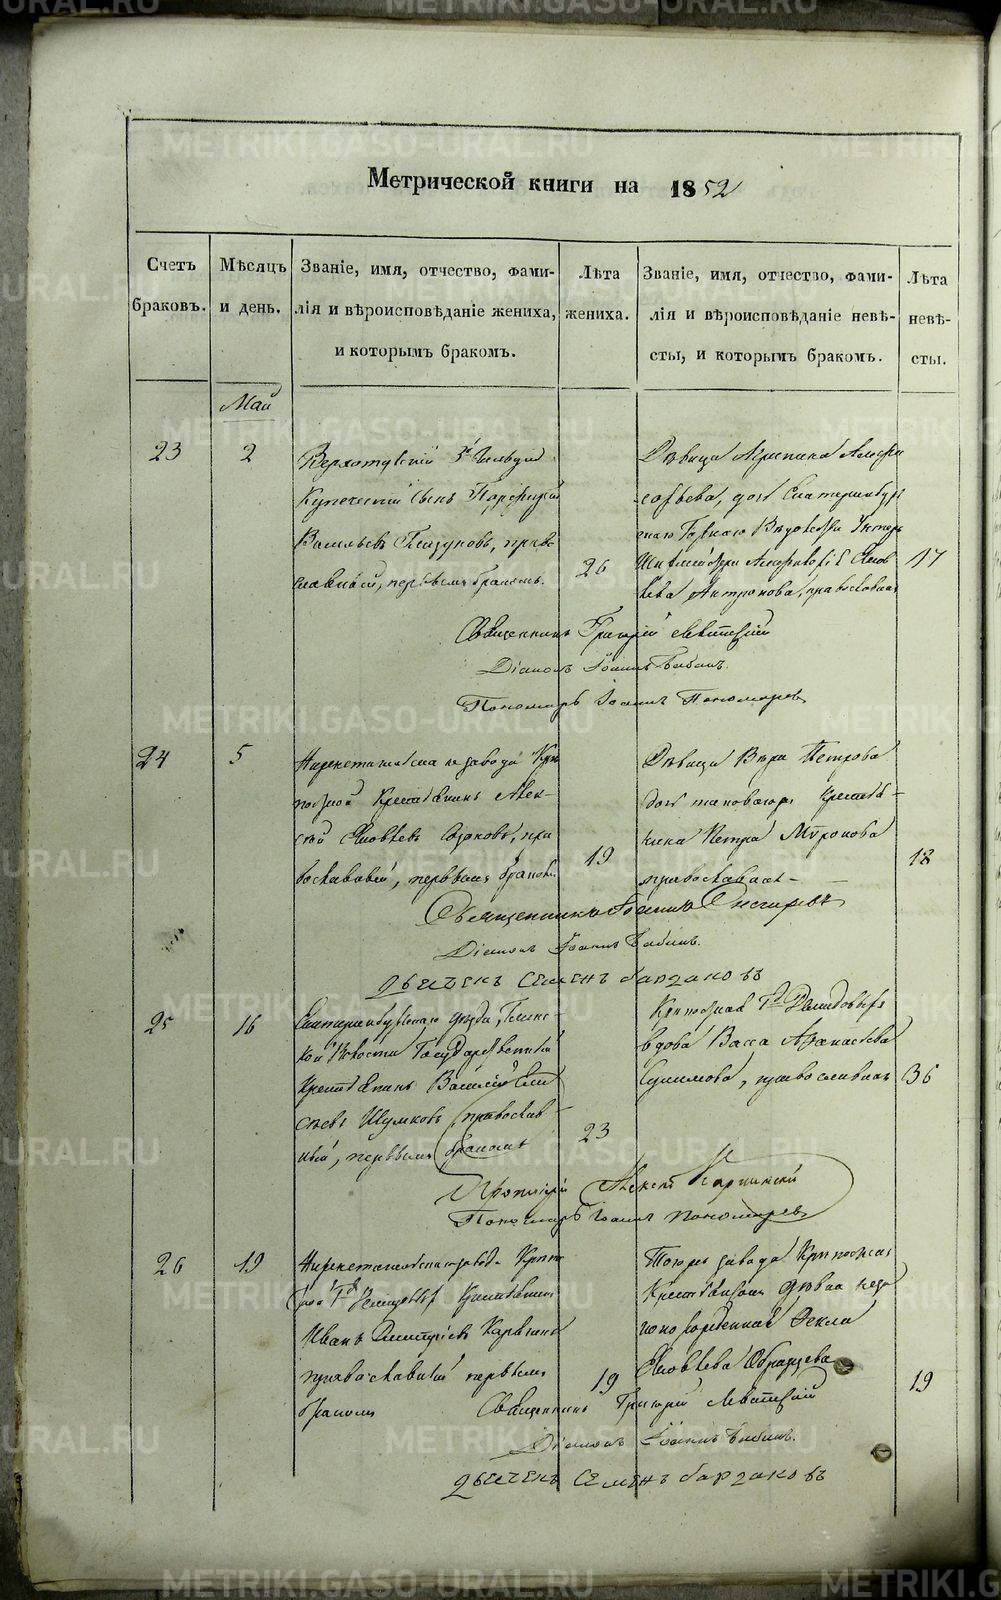 METRIKI.GASO-URAL.RU
Метрической книги на 1852
Счетъ браковъ.
Мѣсяцъ и день.
Званіе, имя, отчество, фами-
лія и вѣроисповѣданіе жениха,
и которымъ бракомъ.
Лѣта жениха.
Званіе, имя, отчество, фами-
лія и вѣроисповѣданіе невѣ-
сты, и которымъ бракомъ.
Лѣта невѣ-
сты.
Май
23
2
Верхотурскій 3й Гильдіи
Купеческій Сынъ
Васильевъ, право
славный, первымъ бракомъ.
26
Дѣвица Агрипина
дочь Екатеринбург
скаго Горнаго Вѣдомства Унтеръ
Шихмейстера
Антропова, православная
17
Священникъ Григорій Левитскій
Діаконъ Іоаннъ Бабинъ.
Пономарь Іоаннъ Пономаревъ
24
5
Нижнетагильскаго завода Крѣ
постной Крестьянинъ Алек
сѣй Яковлевъ, пра
вославный, первымъ бракомъ.
19
Дѣвица Вѣра Петрова
дочь таковагожъ Крестья-
нина Петра Миронова
православная
18
Священникъ Іоаннъ
Діаконъ Іоаннъ Бабинъ.
Дьячекъ Семенъ Барзаковъ
25
16
Екатеринбургскаго уѣзда,
кой волости Государственный
Крестьянинъ Василій
Шумковъ, православ-
ный, первымъ бракомъ
23
Крѣпостная Гг. Демидовыхъ
вдова Васса Афанасьева
Сулимова, православная
36
Протоіерей Алексѣй Карпинскій
Пономарь Іоаннъ Пономаревъ
26
19
Нижнетагильскаго завода Крѣпо
стной Гг. Демидовыхъ Крестьянинъ
Иванъ Дмитріевъ
православный первымъ
бракомъ
19
Тогоже завода Крѣпостная
Крестьянская дѣвка неза
конно рожденная Фекла
Яковлева Образцева
19
Священникъ Григорій Левитскій
Діаконъ Іоаннъ Бабинъ.
Дьячекъ Семенъ Барзаковъ